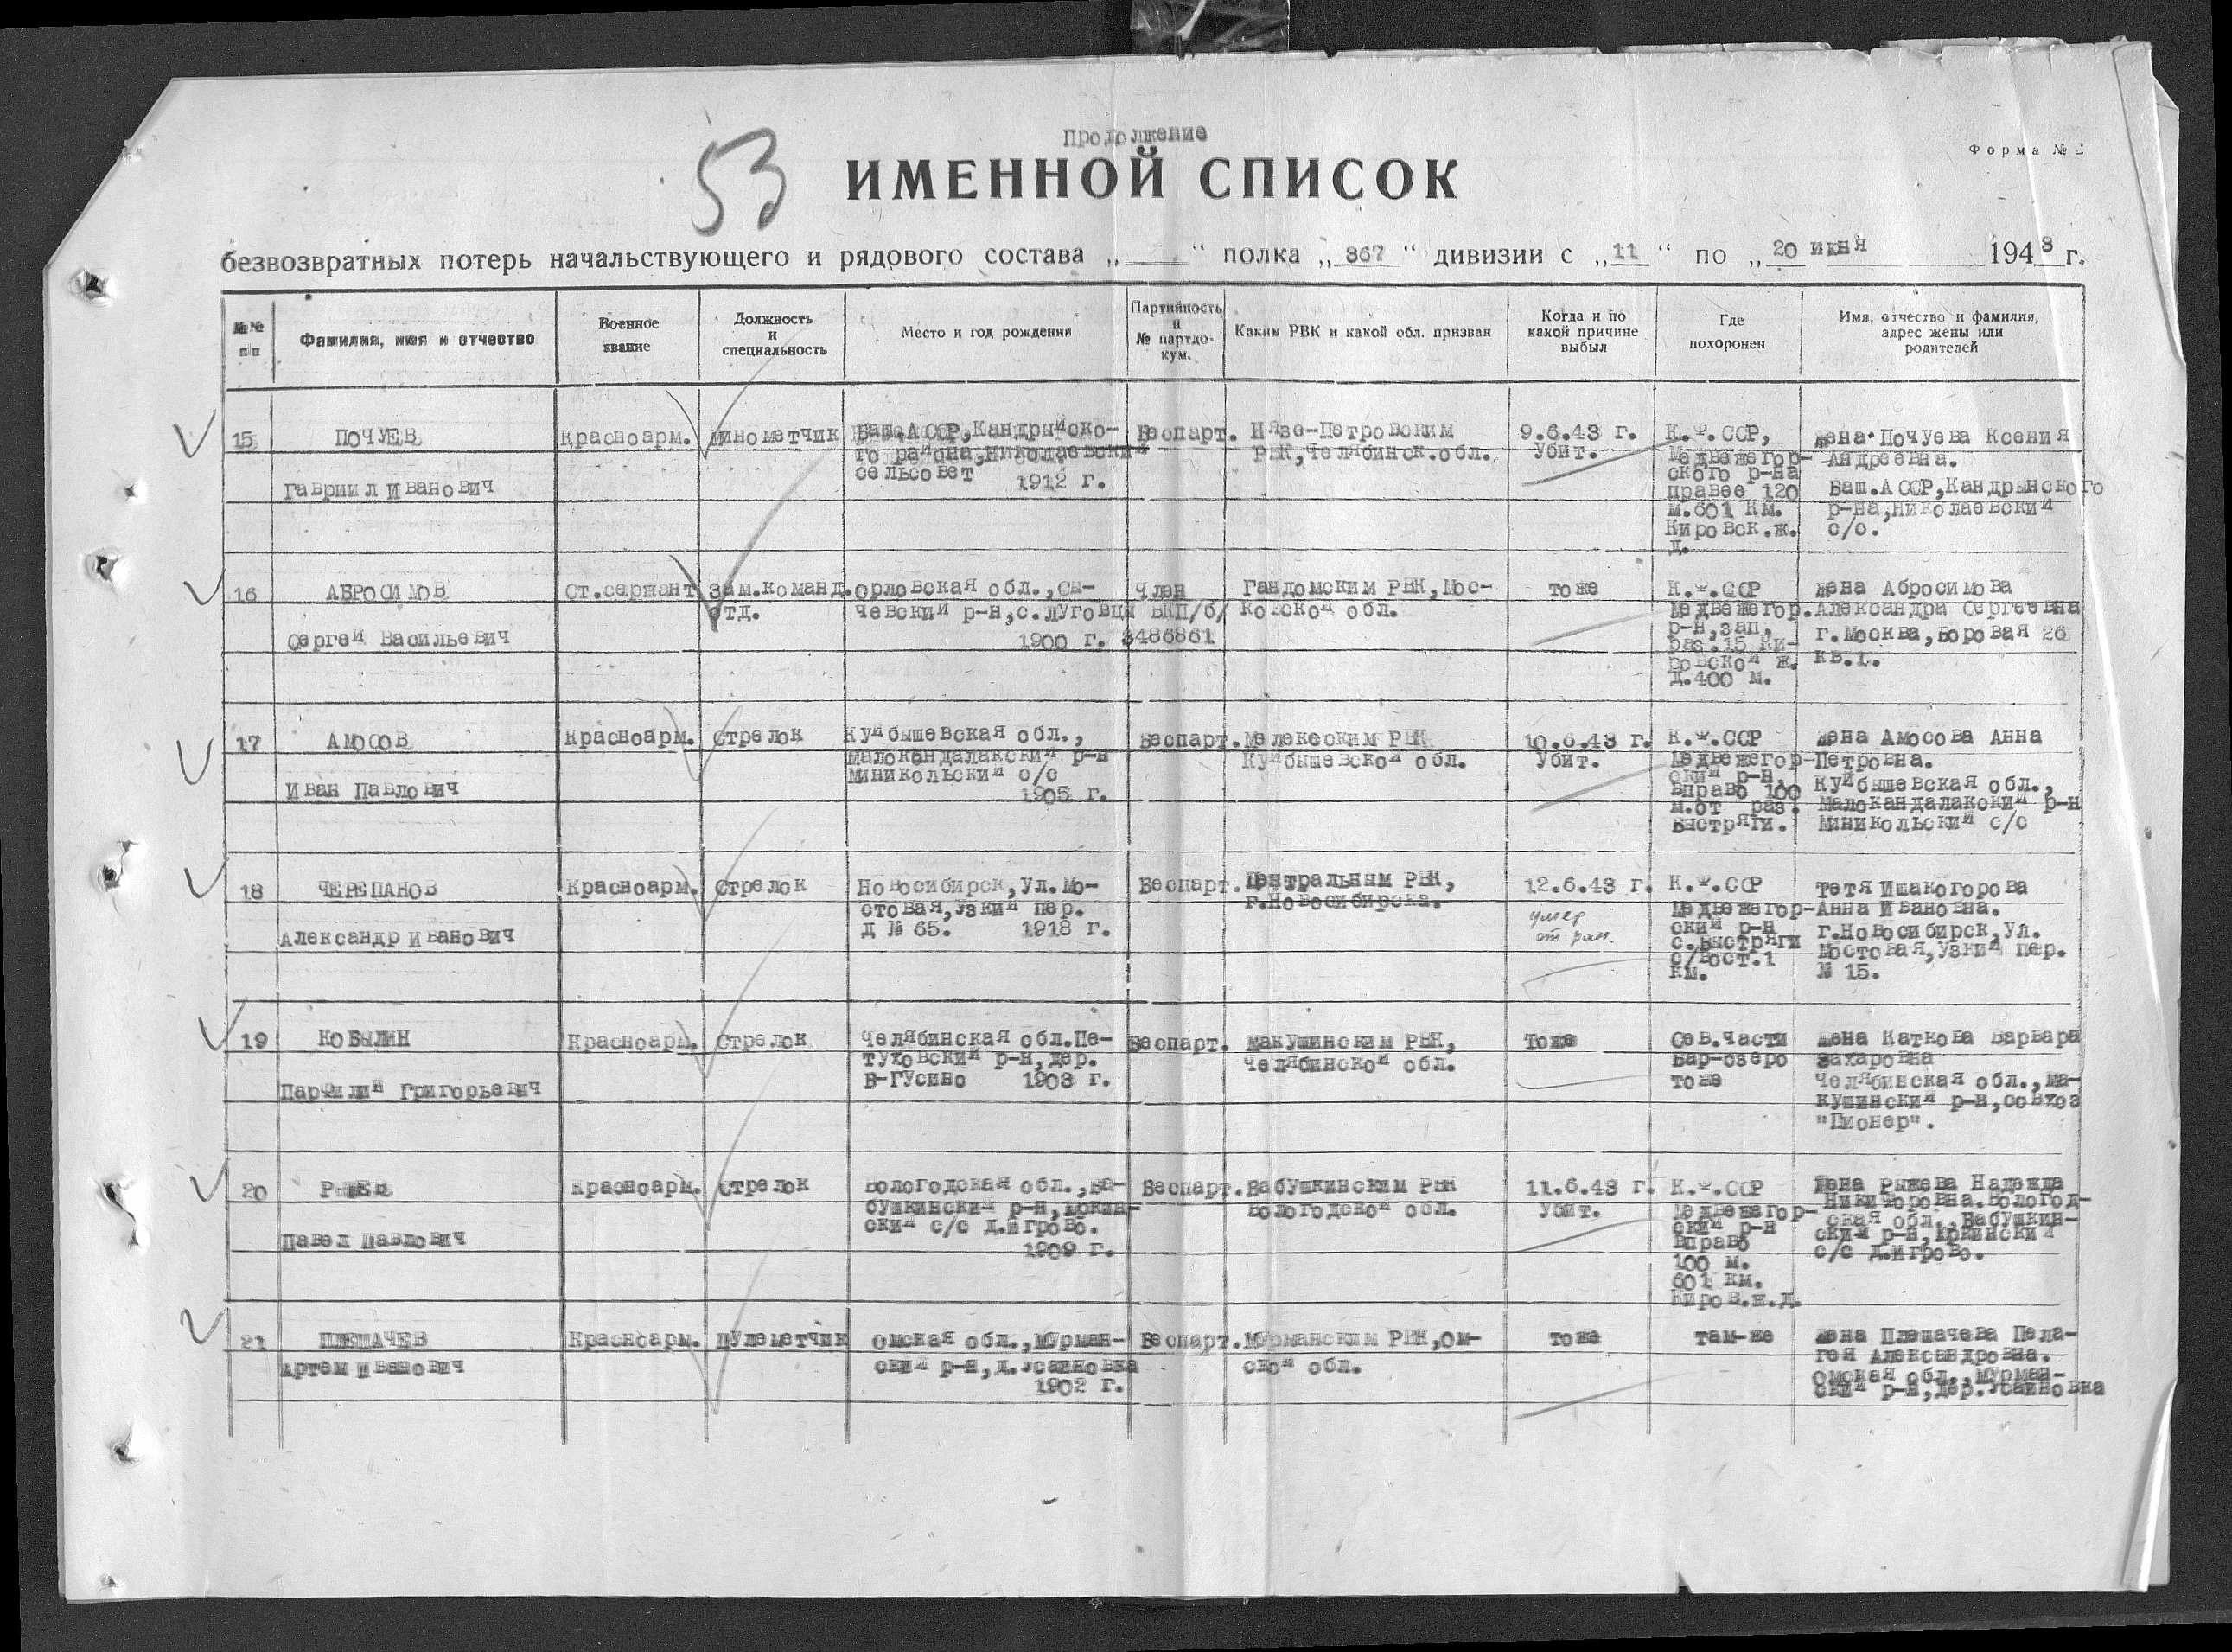 Продолжение
53
Форма №
ИМЕННОЙ СПИСОК
безвозвратных потерь начальствующего и рядового состава „ “ полка „ 367 “ дивизии с „ 11 “ по „ 20 июня 1943 г.
№№ п/п
Фамилия, имя и отчество
Военное звание
Должность и специальность
Место и год рождения
Партийность и № партдокум.
Каким РВК и какой обл. призван
Когда и по какой причине выбыл
Где похоронен
Имя, отчество и фамилия, адрес жены или родителей
15
ПОЧУЕВ
Гавриил Иванович
Красноарм.
Минометчик
Баш.АССР,Кандрыйско-
го района,Николаевский
сельсовет 1912 г.
Беспарт.
Нязе-Петровским
РВК,Челябинск.обл.
9.6.43 г.
Убит.
К.Ф.ССР,
Медвежегор-
ского р-на
правее 120
м.601 км.
Кировск.ж.
д.
жена Почуева Ксения
Андреевна.
Баш.АССР,Кандрынского
р-на,Николаевский
с/с.
16
АБРОСИМОВ
Сергей Васильевич
Ст.сержант
Зам.команд.
отд.
Орловская обл.,Сы-
чевский р-н,с.Луговцы
1900 г.
Член
ВКП/б/
3486861
Гандомским РВК,Мос-
ковской обл.
тоже
К.Ф.ССР
Медвежегор.
р-н,зап.
раз.15 Ки-
ровской ж.
д.400 м.
жена Абросимова
Александра Сергеевна
г.Москва,Боровая 26
кв.1.
17
АМОСОВ
Иван Павлович
Красноарм.
Стрелок
Куйбышевская обл.,
Малокандалакский р-н
Миникольский с/с
1905 г.
Беспарт.
Мелекеским РВК
Куйбышевской обл.
10.6.43 г.
Убит.
К.Ф.ССР
Медвежегор-
ский р-н,
вправо 100
м.от раз.
Быстряги.
жена Амосова Анна
Петровна.
Куйбышевская обл.,
Малокандалакский р-н
Миникольский с/с
18
ЧЕРЕПАНОВ
Александр Иванович
Красноарм.
Стрелок
Новосибирск,ул.Мо-
стовая,Узкий пер.
д № 65. 1918 г.
Беспарт.
Центральным РВК,
г.Новосибирска.
12.6.43 г.
умер
от ран.
К.Ф.ССР
Медвежегор-
ский р-н
с.Быстряги
с/вост.1
км.
тетя Ишакогорова
Анна Ивановна.
г.Новосибирск,ул.
Мостовая,Узкий пер.
№ 15.
19
КОБЫЛИН
Парфилий Григорьевич
Красноарм.
Стрелок
Челябинская обл.Пе-
туховский р-н,дер.
Б-Гусино 1903 г.
Беспарт.
Макушинским РВК,
Челябинской обл.
Тоже
Сев.части
Вар-озеро
тоже
жена Каткова Варвара
Захаровна
Челябинская обл.,Ма-
кушинский р-н,совхоз
"Пионер".
20
РЫЖЕВ
Павел Павлович
Красноарм.
Стрелок
Вологодская обл.,Ба-
бушкинский р-н,
ский с/с д.Игрово.
1909 г.
Беспарт.
Бабушкинским РВК
Вологодской обл.
11.6.43 г.
Убит.
К.Ф.ССР
Медвежегор-
ский р-н
вправо
100 м.
601 км.
Киров.ж.д.
жена Рыжева Надежда
Никифоровна.Вологод-
ская обл.,Бабушкин-
ский р-н,
с/с д.Игрово.
21
ПЛЕШАЧЕВ
Артем Иванович
Красноарм.
Пулеметчик
Омская обл.,Мурман-
ский р-н,д.Усаиновка
1902 г.
Беспарт.
Мурманским РВК,Ом-
ской обл.
тоже
там-же
жена Плешачева Пела-
гея Александровна.
Омская обл.,Мурман-
ский р-н,дер.Усаиновка